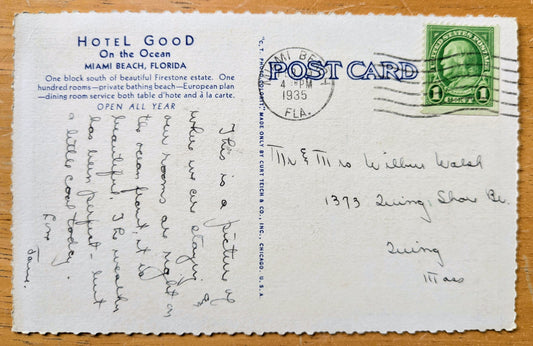 HOTEL GOOD
On the Ocean
MIAMI BEACH, FLORIDA
One block south of beautiful Firestone estate. One
hundred rooms—private bathing beach—European plan
—dining room service both table d'hote and à la carte.
OPEN ALL YEAR
This is a picture of
where we are staying.
our rooms are right on
the ocean front, it is
beautiful. The weather
has been perfect - but
a little cool today.
Love
"C. T. PHOTO COLORIT" MADE ONLY BY CURT TEICH & CO., INC., CHICAGO, U.S.A.
POST CARD
MIAMI BEACH
4 PM
1935
FLA.
UNITED STATES POSTAGE
1 CENT 1
Mr & Mrs Wilbur Walsh
1373 Quincy Shore
Quincy
Mass